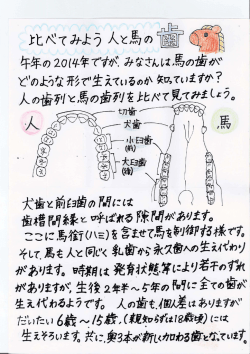 比べてみよう 人と馬の歯
午年の2014年ですが、みなさんは馬の歯が
どのような形で生えているのか知っていますか？
人の歯列と馬の歯列を比べて見てみましょう。
人
馬
切歯
犬歯
小臼歯
(前)
大臼歯
(後)
犬歯と前臼歯の間には
歯槽間縁と呼ばれる隙間があります。
ここに馬銜(ハミ)を含ませ馬を制御する様です。
そして、馬も人と同じく乳歯から永久歯への生えかわり
があります。時期は発育状態等により若干のずれ
がありますが、生後2年半～5年の間に全ての歯が
生え代わるようです。人の歯も、個人差はありますが
だいたい6歳～15歳、(親知らずは18歳頃)には
生えそろいます。共に、奥3本が新しく加わる歯となっています。